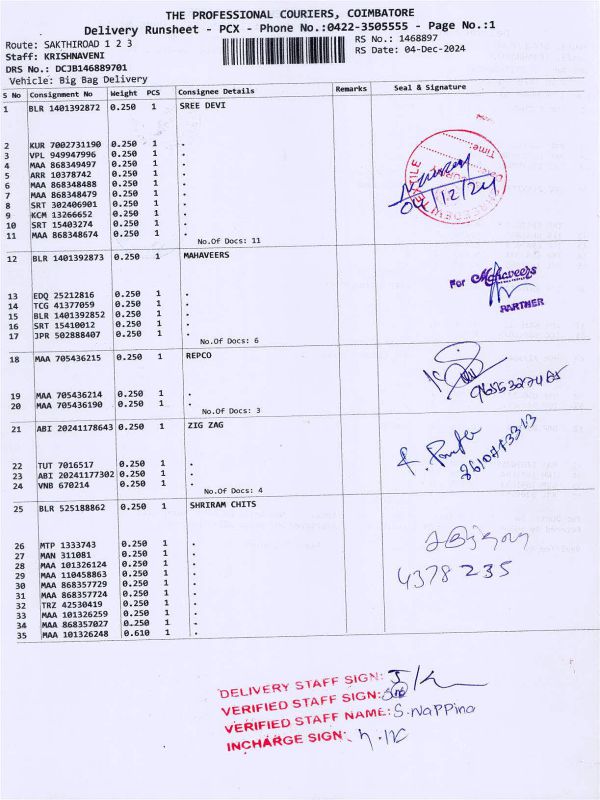 THE PROFESSIONAL COURIERS, COIMBATORE
Delivery Runsheet - PCX - Phone No.:0422-3505555 - Page No.:1
Route: SAKTHIROAD 1 2 3
RS No.: 1468897
Staff: KRISHNAVENI
RS Date: 04-Dec-2024
DRS No.: DCJB146889701
Vehicle: Big Bag Delivery
S No Consignment No Weight PCS Consignee Details Remarks Seal & Signature
1 BLR 1401392872 0.250 1 SREE DEVI
2 KUR 7002731190 0.250 1 .
3 VPL 949947996 0.250 1 .
4 MAA 868349497 0.250 1 .
5 ARR 10378742 0.250 1 .
6 MAA 868348488 0.250 1 .
7 MAA 868348479 0.250 1 .
8 SRT 302406901 0.250 1 .
9 KCM 13266652 0.250 1 .
10 SRT 15403274 0.250 1 .
11 MAA 868348674 0.250 1 .
04/12/24
No.Of Docs: 11
12 BLR 1401392873 0.250 1 MAHAVEERS
For Mahaveers
PARTNER
13 EDQ 25212816 0.250 1 .
14 TCG 41377059 0.250 1 .
15 BLR 1401392852 0.250 1 .
16 SRT 15410012 0.250 1 .
17 JPR 502888407 0.250 1 .
No.Of Docs: 6
18 MAA 705436215 0.250 1 REPCO
19 MAA 705436214 0.250 1 .
20 MAA 705436190 0.250 1 .
No.Of Docs: 3
21 ABI 20241178643 0.250 1 ZIG ZAG
22 TUT 7016517 0.250 1 .
23 ABI 20241177302 0.250 1 .
24 VNB 670214 0.250 1 .
No.Of Docs: 4
25 BLR 525188862 0.250 1 SHRIRAM CHITS
26 MTP 1333743 0.250 1 .
27 MAN 311081 0.250 1 .
28 MAA 101326124 0.250 1 .
29 MAA 110458863 0.250 1 .
30 MAA 868357729 0.250 1 .
31 MAA 868357724 0.250 1 .
32 TRZ 42530419 0.250 1 .
33 MAA 101326259 0.250 1 .
34 MAA 868357027 0.250 1 .
35 MAA 101326248 0.610 1 .
4378235
DELIVERY STAFF SIGN:
VERIFIED STAFF SIGN:
VERIFIED STAFF NAME: S.Nappina
INCHARGE SIGN: